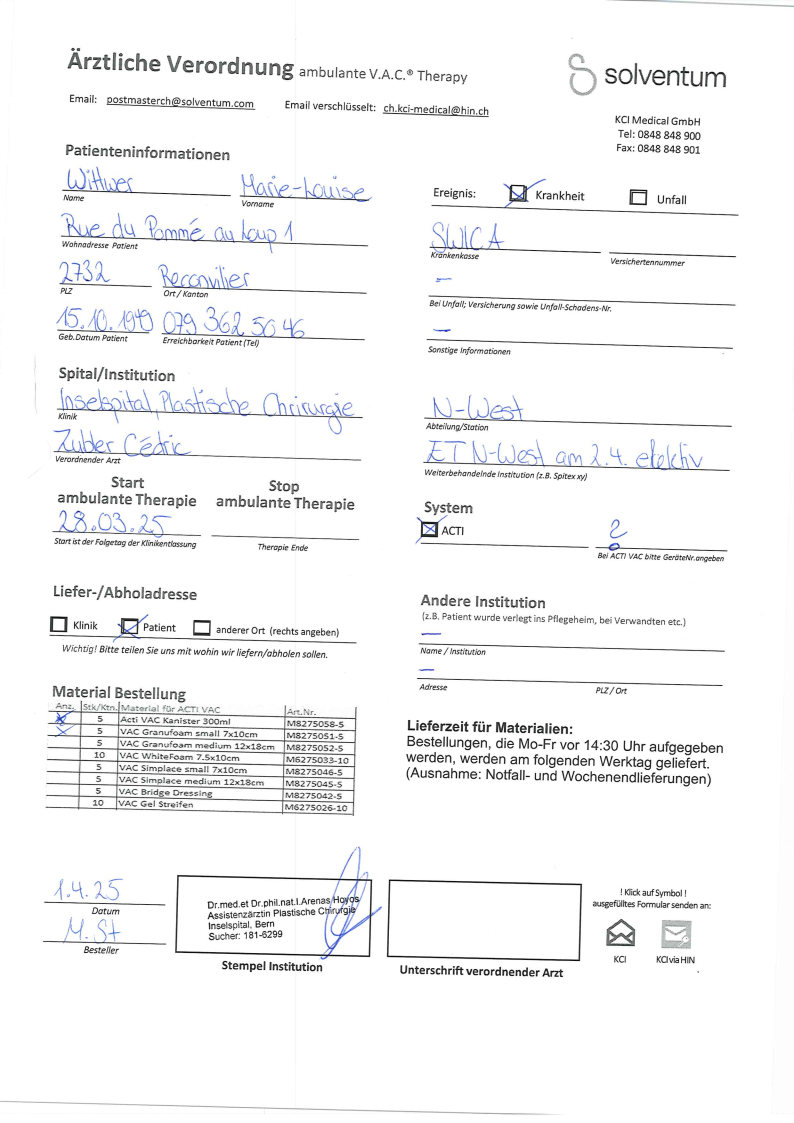 Ärztliche Verordnung ambulante V.A.C.® Therapy
solventum
Email: postmasterch@solventum.com Email verschlüsselt: ch.kci-medical@hin.ch
KCI Medical GmbH
Tel: 0848 848 900
Fax: 0848 848 901
Patienteninformationen
Wittwer Marie-Louise
Name Vorname
Rue du Pommé au Loup 1
Wohnadresse Patient
2732 Reconvilier
PLZ Ort / Kanton
15.10.1949 079 362 50 46
Geb.Datum Patient Erreichbarkeit Patient (Tel)
Ereignis: Krankheit Unfall
SWICA
Krankenkasse Versichertennummer
–
Bei Unfall; Versicherung sowie Unfall-Schadens-Nr.
–
Sonstige Informationen
Spital/Institution
Inselspital, Plastische Chrirurgie
Klinik
Zuber Cédric
Verordnender Arzt
N-West
Abteilung/Station
ET N-West am 2.4. elektiv
Weiterbehandelnde Institution (z.B. Spitex xy)
Start
ambulante Therapie
Stop
ambulante Therapie
28.03.25
Start ist der Folgetag der Klinikentlassung Therapie Ende
System
ACTI
Bei ACTI VAC bitte GeräteNr.angeben
Liefer-/Abholadresse
Klinik Patient anderer Ort (rechts angeben)
Wichtig! Bitte teilen Sie uns mit wohin wir liefern/abholen sollen.
Andere Institution
(z.B. Patient wurde verlegt ins Pflegeheim, bei Verwandten etc.)
–
Name / Institution
–
Adresse PLZ / Ort
Material Bestellung
Anz. Stk/Ktn. Material für ACTI VAC Art.Nr.
5 Acti VAC Kanister 300ml M8275058-5
5 VAC Granufoam small 7x10cm M8275051-5
5 VAC Granufoam medium 12x18cm M8275052-5
10 VAC WhiteFoam 7.5x10cm M6275033-10
5 VAC Simplace small 7x10cm M8275046-5
5 VAC Simplace medium 12x18cm M8275045-5
5 VAC Bridge Dressing M8275042-5
10 VAC Gel Streifen M6275026-10
Lieferzeit für Materialien:
Bestellungen, die Mo-Fr vor 14:30 Uhr aufgegeben
werden, werden am folgenden Werktag geliefert.
(Ausnahme: Notfall- und Wochenendlieferungen)
1.4.25
Datum
M. St
Besteller
Dr.med.et Dr.phil.nat.I.Arenas Hoyos
Assistenzärztin Plastische Chirurgie
Inselspital, Bern
Sucher: 181-6299
Stempel Institution
Unterschrift verordnender Arzt
! Klick auf Symbol !
ausgefülltes Formular senden an:
KCI KCI via HIN